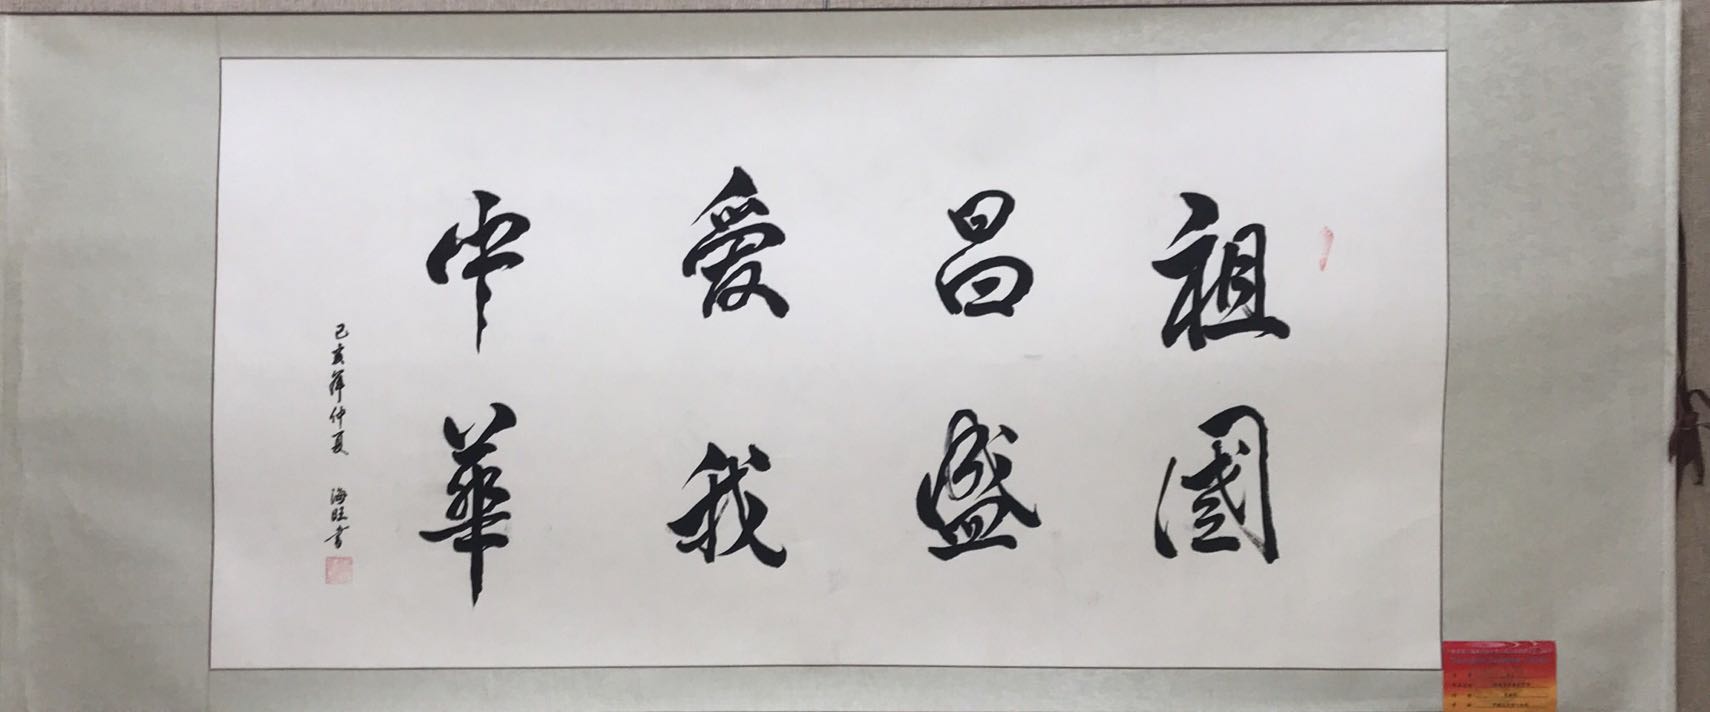 祖國
昌盛
愛我
中華
己亥年仲夏
海旺書